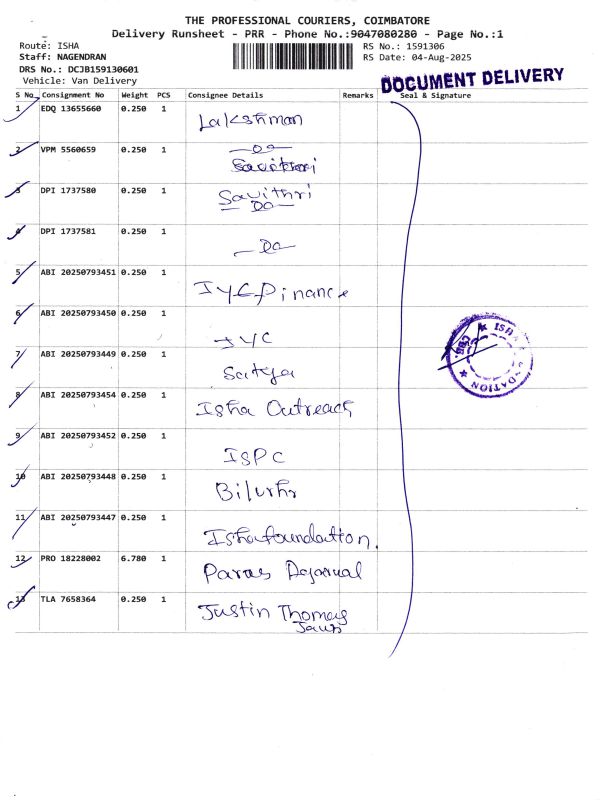 THE PROFESSIONAL COURIERS, COIMBATORE
Delivery Runsheet - PRR - Phone No.:9047080280 - Page No.:1
Route: ISHA
Staff: NAGENDRAN
DRS No.: DCJB159130601
Vehicle: Van Delivery
RS No.: 1591306
RS Date: 04-Aug-2025
DOCUMENT DELIVERY
S No Consignment No Weight PCS Consignee Details Remarks Seal & Signature
1 EDQ 13655660 0.250 1 Lakshman
2 VPM 5560659 0.250 1 -Do-
3 DPI 1737580 0.250 1 Savithri
-Do-
4 DPI 1737581 0.250 1 -Do-
5 ABI 20250793451 0.250 1 IYC Finance
6 ABI 20250793450 0.250 1 IYC
7 ABI 20250793449 0.250 1 Satya
8 ABI 20250793454 0.250 1 Isha Outreach
9 ABI 20250793452 0.250 1 ISPC
10 ABI 20250793448 0.250 1
11 ABI 20250793447 0.250 1 Isha foundation.
12 PRO 18228002 6.780 1 Paras
13 TLA 7658364 0.250 1 Justin Thomas
ISHA
CBE.